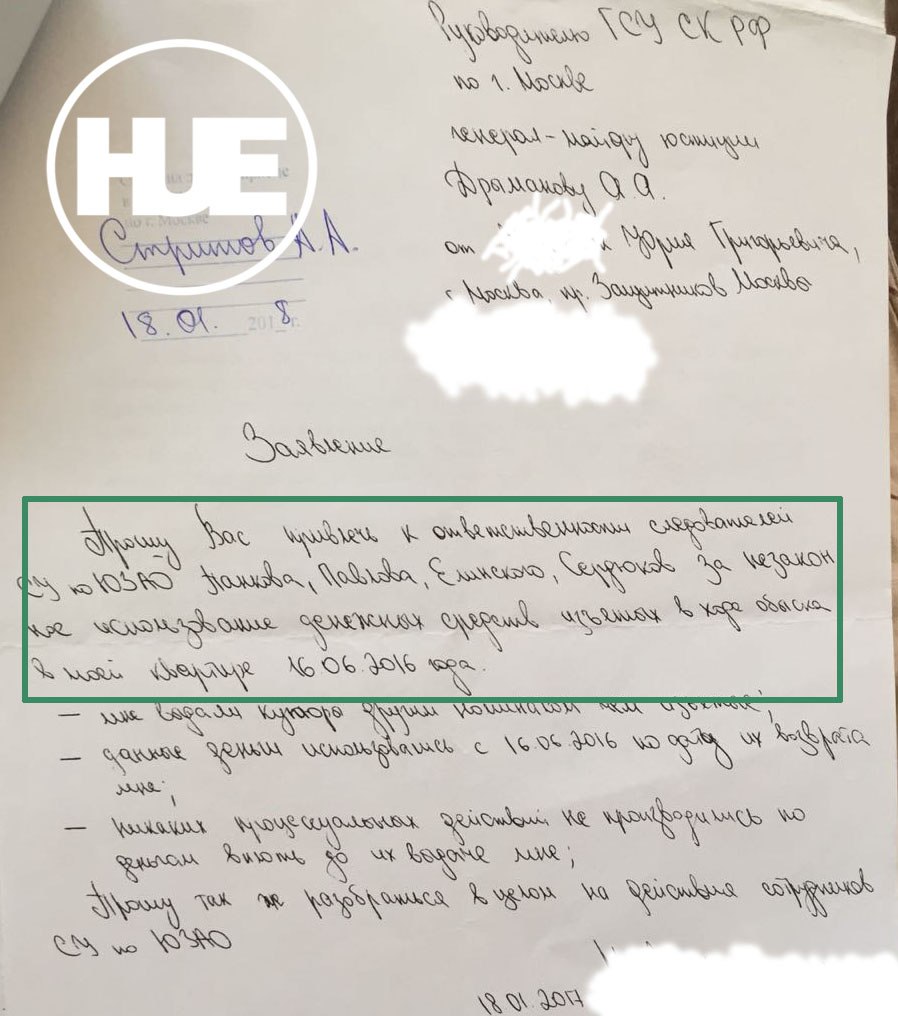 HUE
Руководителю ГСУ СК РФ
по г. Москве
генерал-майору юстиции
Дрыманову А.А.
от Юрия Григорьевича,
г. Москва, пр. Защитников Москвы
по г. Москве
Стритов А.А.
18.01. 2018г.
Заявление
Прошу Вас привлечь к ответственности следователей
СУ по ЮЗАО Панкова, Павлова, Елинского, Сердюков за незакон
ное использование денежных средств изъятых в ходе обыска
в моей квартире 16.06.2016 года.
– мне выдали купюры другим номиналом чем изъятые;
– данное деньги использовались с 16.06.2016 по дату их возврата
мне;
– никаких процессуальных действий не производились по
деньгам вплоть до их выдаче мне;
Прошу так же разобраться в целом на действия сотрудников
СУ по ЮЗАО
18.01.2017